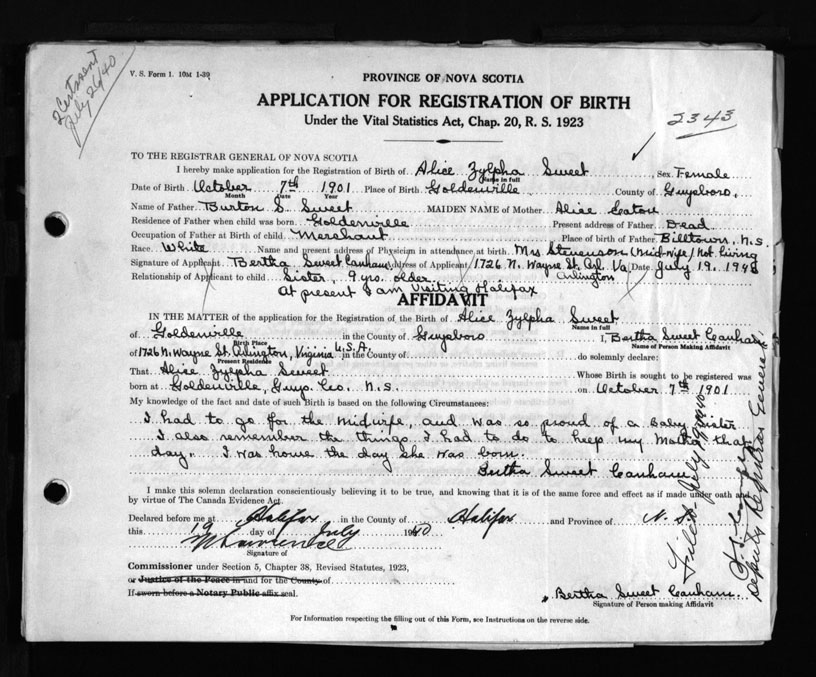 2 Certs sent
July 26/40
V. S. Form 1. 10M 1-39
PROVINCE OF NOVA SCOTIA
APPLICATION FOR REGISTRATION OF BIRTH
Under the Vital Statistics Act, Chap. 20, R. S. 1923
2343
TO THE REGISTRAR GENERAL OF NOVA SCOTIA
I hereby make application for the Registration of Birth of Alice Zylpha Sweet, Sex Female
Name in full
Date of Birth October 7th 1901 Place of Birth Goldenville County of Guysboro.
Month Day Year
Name of Father Burton S. Sweet MAIDEN NAME of Mother Alice Eaton
Residence of Father when child was born Goldenville Present address of Father Dead
Occupation of Father at Birth of child Merchant Place of birth of Father Billtown, N.S.
Race White Name and present address of Physician in attendance at birth Mrs Stevenson (Mid-wife) Not living
Signature of Applicant Bertha Sweet Canham Address of Applicant 1726 N. Wayne St. Arl. Va Date July 19. 1940
Arlington
Relationship of Applicant to child Sister, 9 yrs. older
At present I am visiting Halifax
AFFIDAVIT
IN THE MATTER of the application for the Registration of the Birth of Alice Zylpha Sweet
Name in full
of Goldenville in the County of Guysboro I, Bertha Sweet Canham
Birth Place
Name of Person Making Affidavit
of 1726 N. Wayne St. Arlington, Virginia U.S.A. in the County of do solemnly declare:
Present Residence
That Alice Zylpha Sweet Whose Birth is sought to be registered was
born at Goldenville, Guys. Co. N.S. on October 7th 1901
My knowledge of the fact and date of such Birth is based on the following Circumstances:
I had to go for the midwife, and was so proud of a baby sister
I also remember the things I had to do to keep my Mother that
day. I was home the day she was born.
Bertha Sweet Canham
I make this solemn declaration conscientiously believing it to be true, and knowing that it is of the same force and effect as if made under oath and
by virtue of The Canada Evidence Act.
Declared before me at Halifax in the County of Halifax and Province of N. S.
this 19 day of July 1940
Signature of
Commissioner under Section 5, Chapter 38, Revised Statutes, 1923,
or Justice of the Peace in and for the County of
If sworn before a Notary Public affix seal.
Bertha Sweet Canham.
Signature of Person making Affidavit
For Information respecting the filling out of this Form, see Instructions on the reverse side.
Filed July 1940
Deputy Registrar General